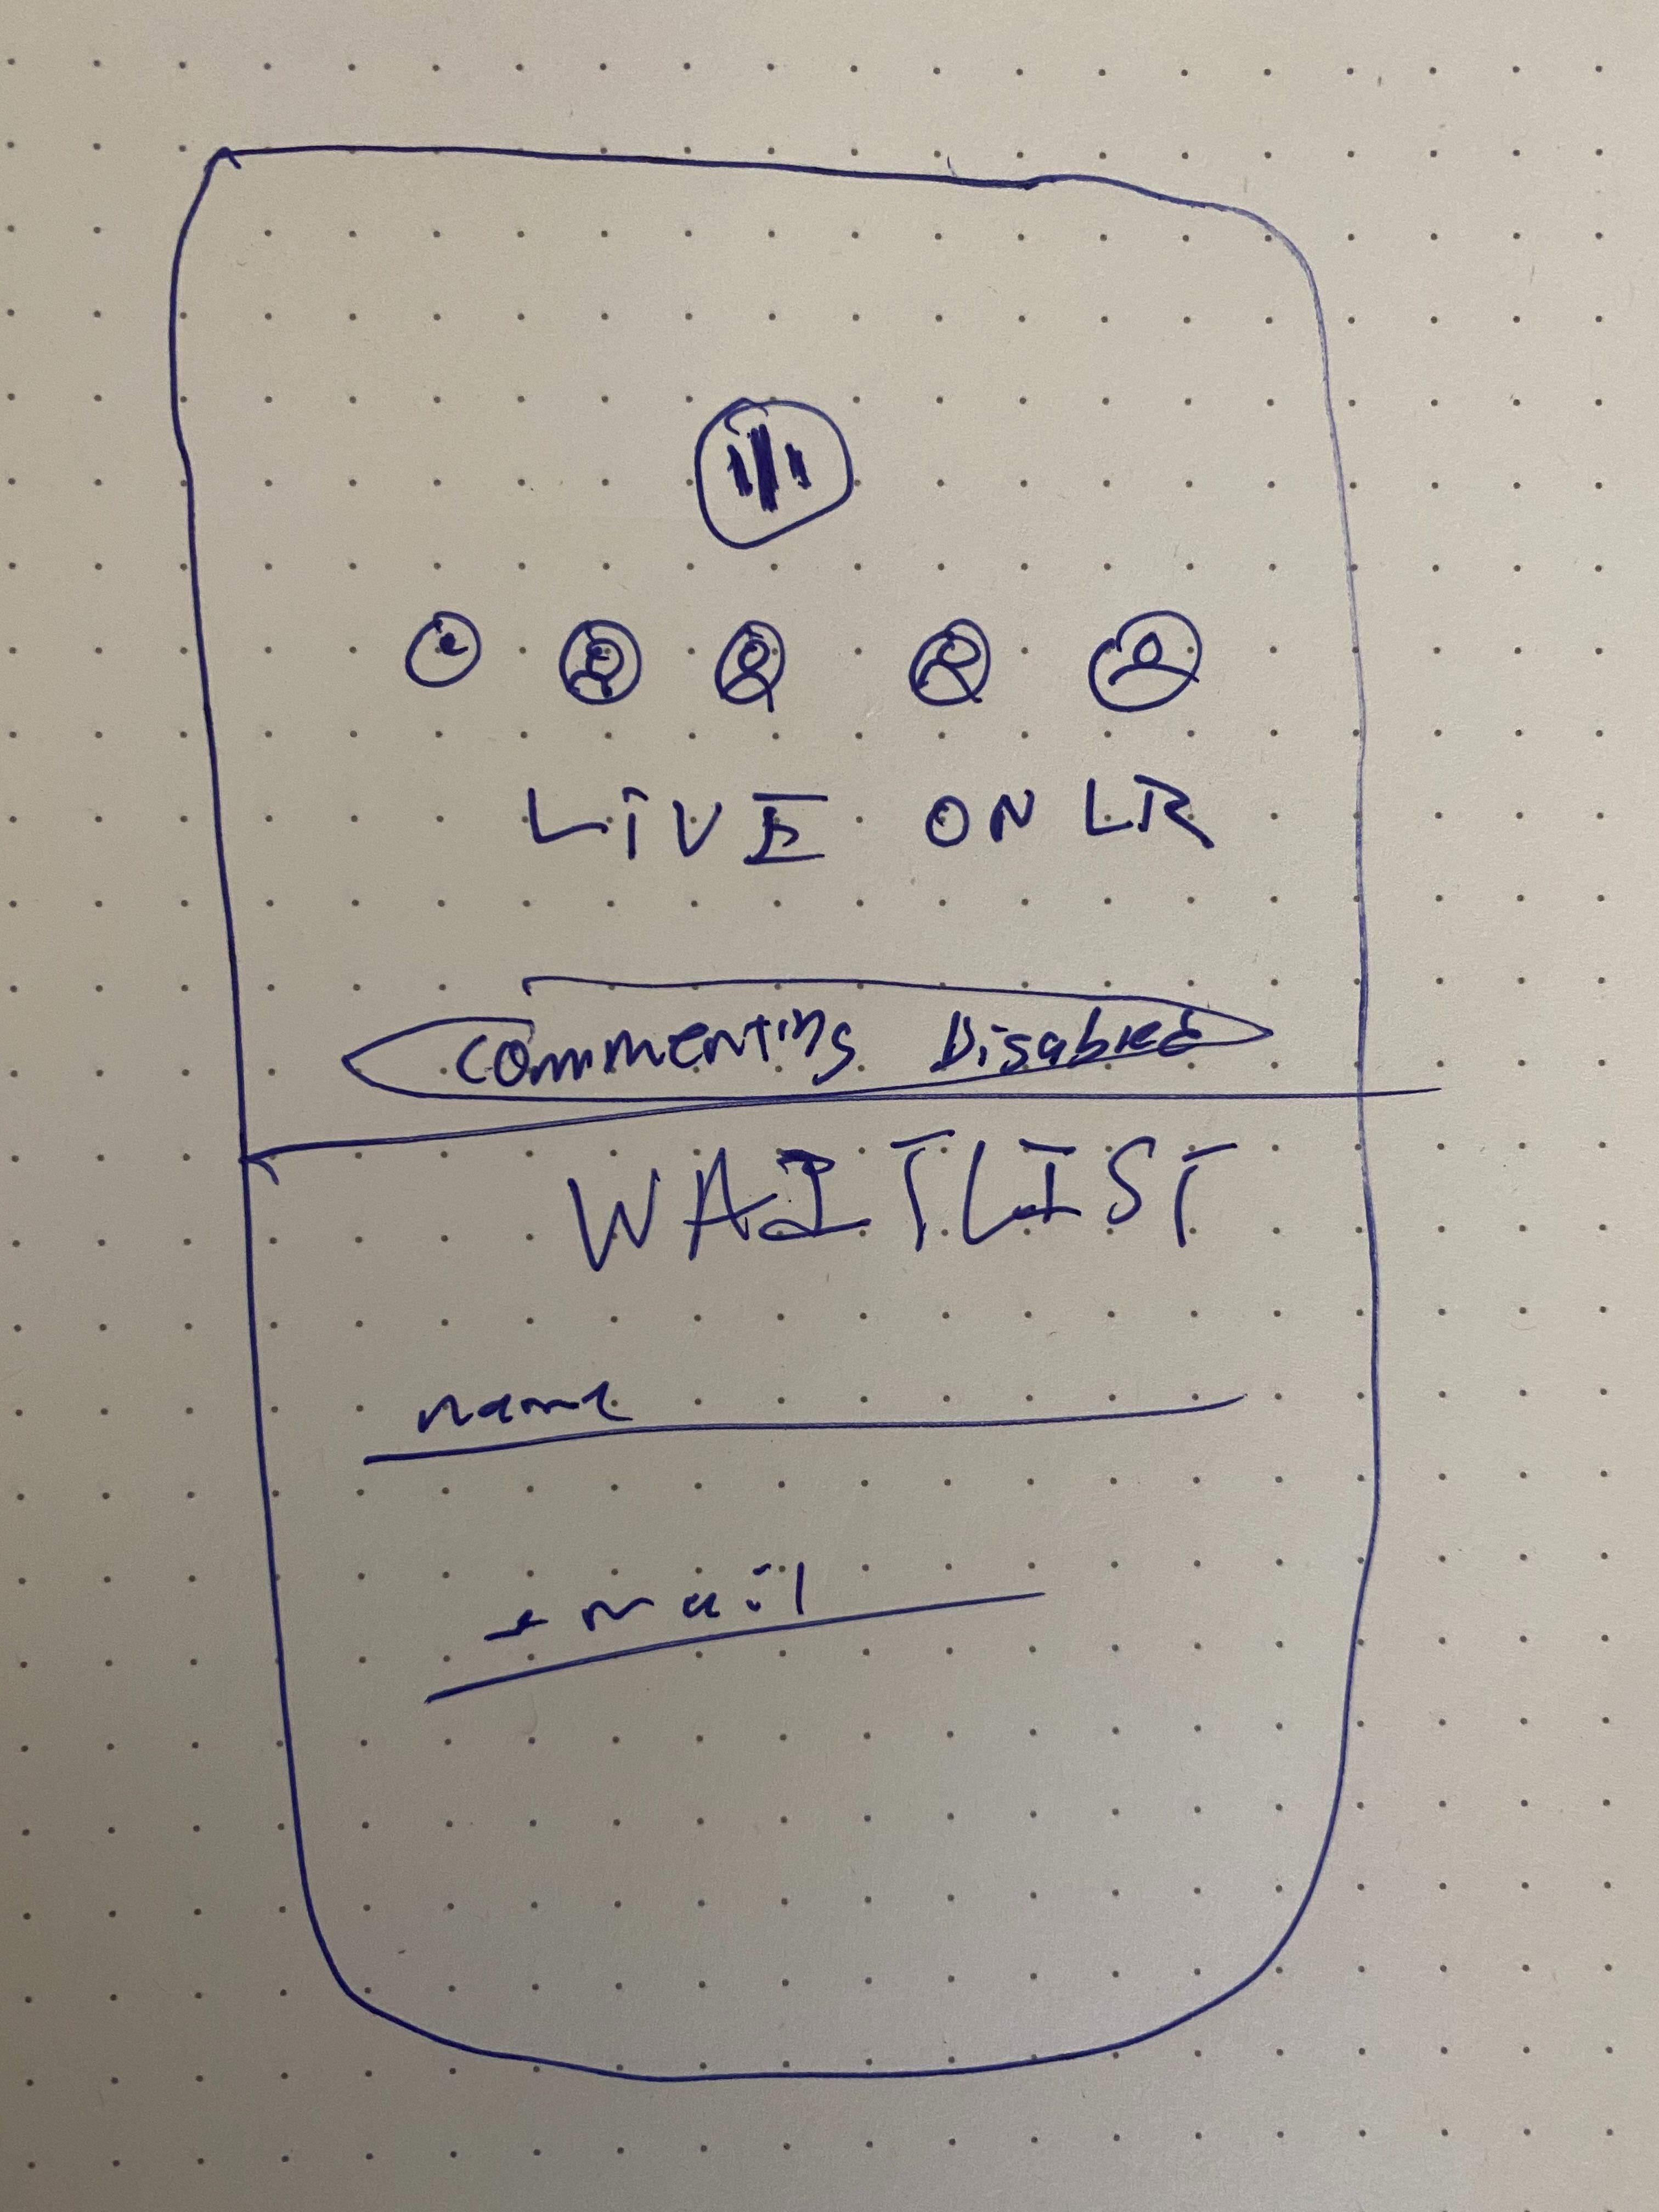 LIVE ON LR
Commenting Disabled
WAITLIST
name
email